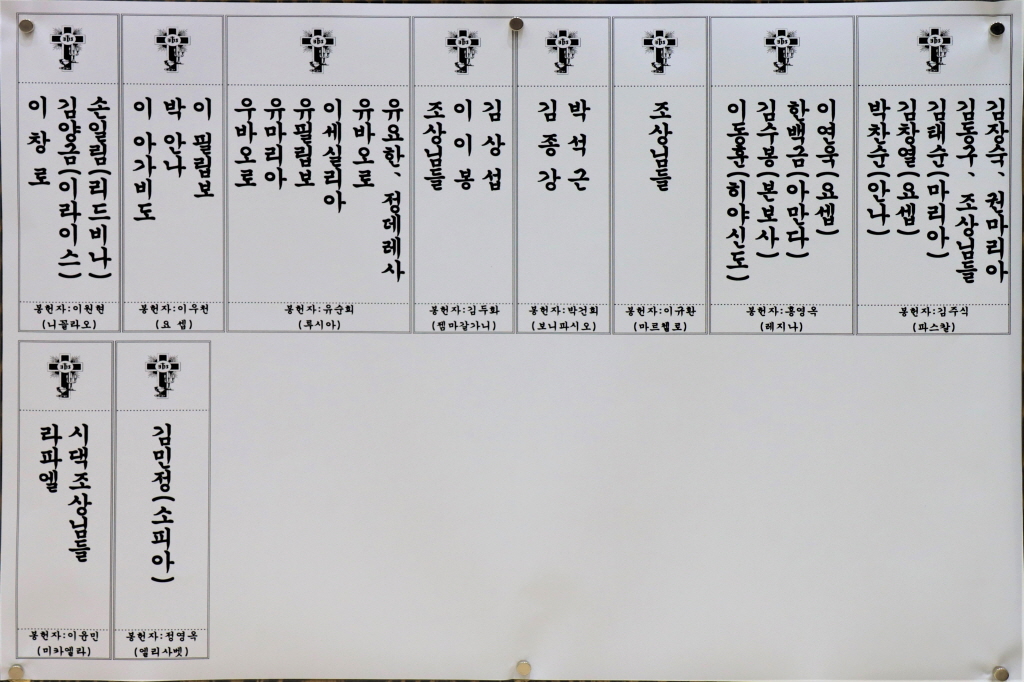 손일림(리드비나)
김양금(이라이스)
이창로
봉헌자:이원현
(니꼴라오)
이 필립보
박 안나
이 아가비도
봉헌자:이우천
(요 셉)
유요한、정데레사
유바오로
이세실리아
유필립보
유마리아
우바오로
봉헌자:유순희
(루시아)
김상섭
이이봉
조상님들
봉헌자:김두화
(젬마갈가니)
박석근
김종강
봉헌자:박건희
(보니파시오)
조상님들
봉헌자:이규환
(마르첼로)
이연욱(요셉)
한백금(아만다)
김수봉(본보사)
이동훈(히야신도)
봉헌자:홍영옥
(레지나)
김장숙、권마리아
김동수、조상님들
김태순(마리아)
김창열(요셉)
박찬순(안나)
봉헌자:김주식
(파스찰)
시댁조상님들
라파엘
봉헌자:이윤민
(미카엘라)
김민정(소피아)
봉헌자:정영옥
(엘리사벳)